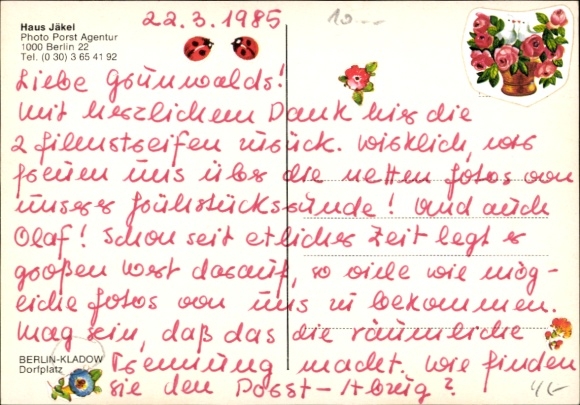 22.3.1985
10.--
Haus Jäkel
Photo Porst Agentur
1000 Berlin 22
Tel. (0 30) 3 65 41 92
Liebe Grünwalds!
Mit herzlichem Dank hier die
2 Filmstreifen zurück. Wirklich, wir
freuen uns über die netten Fotos von
unserer Frühstücksrunde! Und auch
Olaf! Schon seit etlicher Zeit legt er
großen Wert darauf, so viele wie mög-
liche Fotos von uns zu bekommen.
Mag sein, daß das die räumliche
Trennung macht. Wie finden
Sie den Posst-Abzug?
BERLIN-KLADOW
Dorfplatz